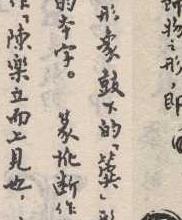 飾物之形，即
形象鼓下的「」形
的本字。 篆訛斷作
作「陳樂立而上見也，